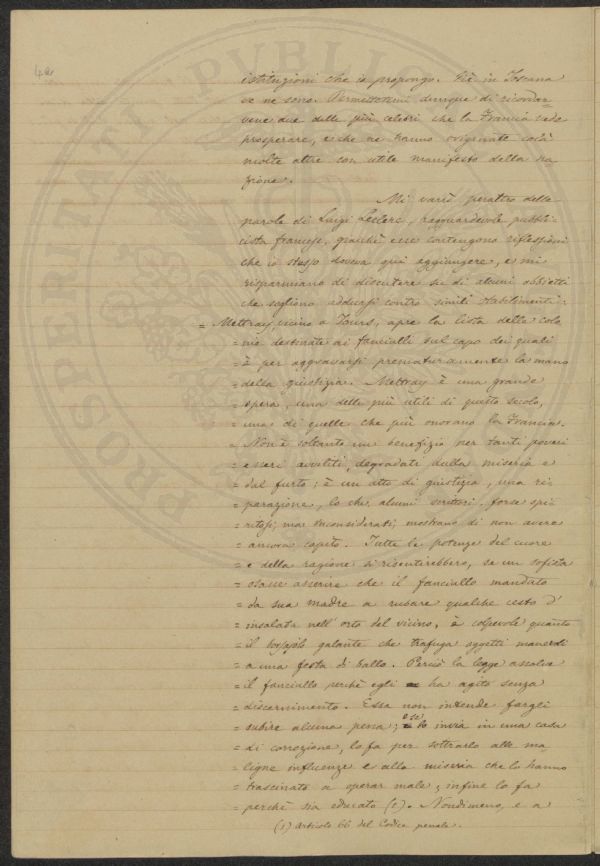 istituzioni che io propongo. Già in Toscana
ve ne sono. Permettetemi dunque di ricordar-
vene due delle più celebri che la Francia vede
prosperare, e che ne hanno originate colà
molte altre con utile manifesto della na
zione.
Mi varrò peraltro delle
parole di Luigi Leclerc, ragguardevole pubbli-
cista francese, giacchè esse contengono riflessioni
che io stesso doveva qui aggiungere, e mi
risparmiano di discutere su di alcuni obbietti
che sogliono addursi contro simili stabilimenti:
= Mettray, vicino a Tours, apre la lista delle colo
= nie destinate ai fanciulli sul capo dei quali
= è per aggravarsi prematuramente la mano
= della giustizia. Mettray è una grande
= opera, una delle più utili di questo secolo,
= una di quelle che più onorano la Francia.
= Non è soltanto un benefizio per tanti poveri
= esseri avviliti, degradati dalla miseria e
= dal furto; è un atto di giustizia, una ri
= parazione, lo che alcuni scrittori, forse spi
= ritosi, ma inconsiderati, mostrano di non avere
= ancora capito. Tutte le potenze del cuore
= e della ragione si risentirebbero, se un sofista
= osasse asserire che il fanciullo mandato
= da sua madre a rubare qualche cesto d'
= insalata nell'orto del vicino, è colpevole quanto
= il borsajolo galante che trafuga oggetti muliebri
= a una festa di ballo. Perciò la legge assolve
= il fanciullo perchè egli ha agito senza
= discernimento. Essa non intende fargli
= subire alcuna pena; e se lo invia in una casa
= di correzione, lo fa per sottrarlo alle ma
= ligne influenze e alla miseria che lo hanno
= trascinato a operar male; infine lo fa
= perchè sia educato (1). Nondimeno, e a
(1) Articolo 66 del Codice penale.
PVBLICAE
PROSPERITATI